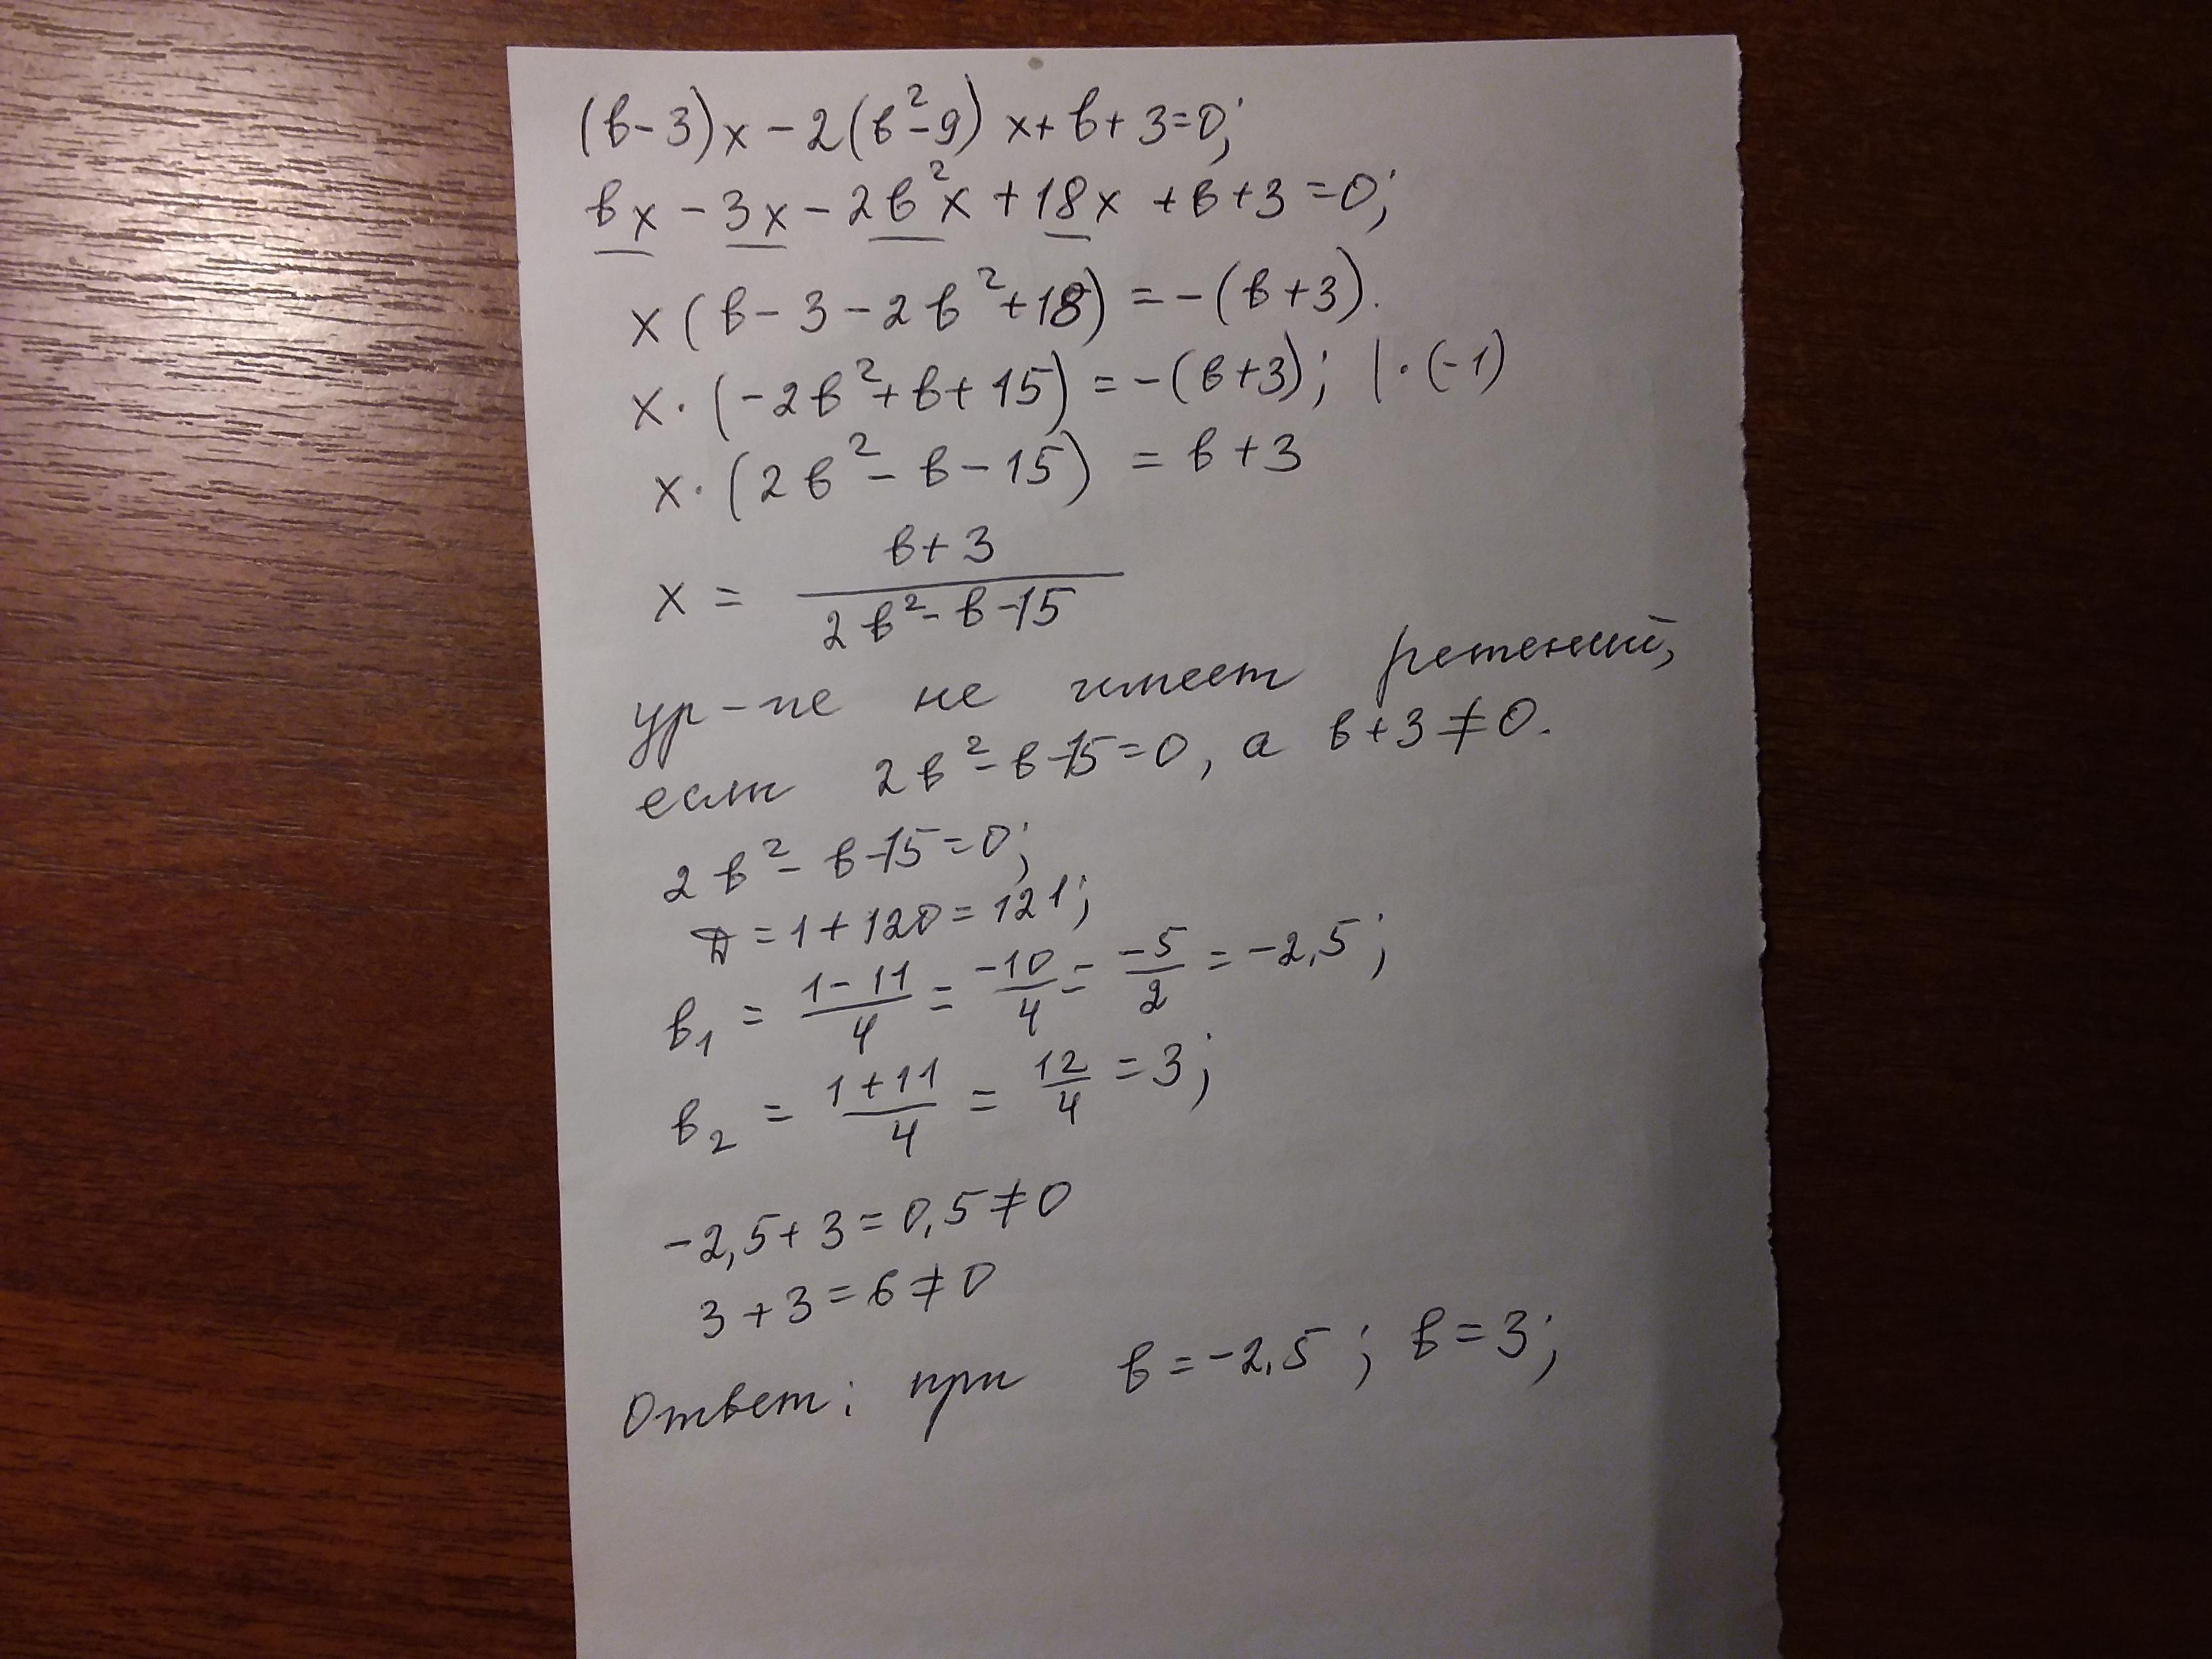 (в-3)x-2(в²-9)x+в+3=0;
вx-3x-2в²x+18x+в+3=0;
x(в-3-2в²+18)=-(в+3).
x·(-2в²+в+15)=-(в+3); |·(-1)
x·(2в²-в-15)=в+3
x = (в+3)/(2в²-в-15)
ур-ие не имеет решений,
если 2в²-в-15=0, а в+3≠0.
2в²-в-15=0;
Д=1+120=121;
в₁ = (1-11)/4 = -10/4 = -5/2 = -2,5;
в₂ = (1+11)/4 = 12/4 = 3;
-2,5+3=0,5≠0
3+3=6≠0
Ответ: при в=-2,5; в=3;